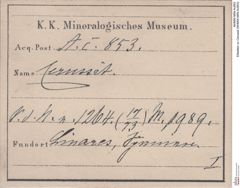 K. K. Mineralogisches Museum.
Acq. Post A. č. 853.
Name Cerussit.
V. d. L. n. 1264 (17/73) M, 1989.
Fundort Linares,
I